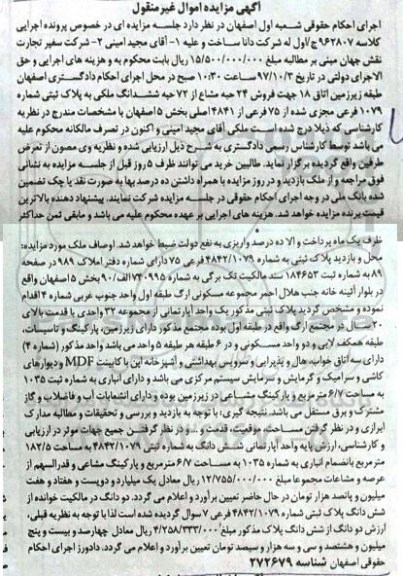 آگهی مزایده اموال غیرمنقول
اجرای احکام حقوقی شعبه اول اصفهان در نظر دارد جلسه مزایده ای در خصوص پرونده اجرایی
کلاسه ۹۶۲۸۰۷ ج/اول له شرکت دانا ساخت و علیه ۱- آقای مجید امینی ۲- شرکت سفیر تجارت
نقش جهان مبنی بر مطالبه مبلغ ۱۵/۵۰۰/۰۰۰/۰۰۰ ریال بابت محکوم به و هزینه های اجرایی و حق
الاجرای دولتی در تاریخ ۹۷/۱۰/۳ ساعت ۱۰:۳۰ صبح در محل اجرای احکام دادگستری اصفهان
طبقه زیرزمین اتاق ۱۸ جهت فروش ۲۴ حبه مشاع از ۷۲ حبه ششدانگ ملکی به پلاک ثبتی شماره
۱۰۷۹ فرعی مجزی شده از ۷۵ فرعی از ۴۸۴۱ اصلی بخش ۵ اصفهان با مشخصات مندرج در نظریه
کارشناسی که ذیلا درج شده است ملکی آقای مجید امینی و اکنون در تصرف مالکانه محکوم علیه
می باشد توسط کارشناس رسمی دادگستری به شرح ذیل ارزیابی شده و نظریه وی مصون از تعرض
طرفین واقع گردیده برگزار نماید. طالبین خرید می توانند ظرف ۵ روز قبل از جلسه مزایده به نشانی
فوق مراجعه و از ملک بازدید و در روز مزایده با همراه داشتن ده درصد بها به صورت نقد یا چک تضمین
شده بانک ملی در وجه اجرای احکام حقوقی در جلسه مزایده شرکت نمایند. پیشنهاد دهنده بالاترین
قیمت برنده مزایده خواهد شد. هزینه های اجرایی بر عهده محکوم علیه می باشد و مابقی ثمن حداکثر
ظرف یک ماه پرداخت و الا ده درصد واریزی به نفع دولت ضبط خواهد شد. اوصاف ملک مورد مزایده:
محل و بازدید پلاک ثبتی به شماره ۴۸۴۲/۱۰۷۹ فرعی ۷۵ دارای شماره دفتر املاک ۹۸۹ در صفحه
۸۹ به شماره ثبت ۱۸۴۶۵۳ سند مالکیت تک برگی به شماره ۷۴۰۹۹۵ الف/۹۰ بخش ۵ اصفهان واقع
در بلوار آئینه خانه جنب هلال احمر مجموعه مسکونی ارگ طبقه اول واحد جنوب غربی شماره ۴ اقدام
نموده و مشخص گردید پلاک ثبتی مذکور یک واحد آپارتمانی از مجموعه ۳۲ واحدی با قدمت بالای
۲۰ سال در مجتمع ارگ واقع در طبقه اول بوده مجتمع مذکور دارای زیرزمین، پارکینگ و تاسیسات،
طبقه همکف لابی و دو واحد مسکونی و در ۶ طبقه هر طبقه ۵ واحد می باشد واحد مذکور (شماره ۴)
دارای سه اتاق خواب، هال و پذیرایی و سرویس بهداشتی و آشپزخانه اپن با کابینت MDF و دیوارهای
کاشی و سرامیک و گرمایش و سرمایش سیستم مرکزی می باشد و دارای انباری به شماره ثبت ۱۰۳۵
به مساحت ۶/۷ مترمربع و پارکینگ مشاعی در زیرزمین بوده و دارای انشعابات آب و فاضلاب و گاز
مشترک و برق مستقل می باشد. نتیجه گیری: با توجه به بازدید و بررسی و تحقیقات و مطالعه مدارک
ابرازی و در نظر گرفتن مساحت، موقعیت، قدمت و... و در نظر گرفتن جمیع جهات موثر در ارزیابی
و کارشناسی، ارزش پایه واحد آپارتمانی شش دانگ به شماره ثبتی ۴۸۴۲/۱۰۷۹ به مساحت ۱۸۲/۵
مترمربع بانضمام انباری به شماره ۱۰۳۵ به مساحت ۶/۷ مترمربع و پارکینگ مشاعی و قدرالسهم از
عرصه و مشاعات مجموعا مبلغ ۱۲/۷۵۵/۰۰۰/۰۰۰ ریال معادل یک میلیارد و دویست و هفتاد و هفت
میلیون و پانصد هزار تومان در حال حاضر تعیین برآورد و اعلام می گردد. دو دانگ در مالکیت خوانده از
شش دانگ پلاک ثبتی شماره ۴۸۴۲/۱۰۷۹ فرعی ۷ سوال گردیده شده است لذا با توجه به نظریه قبلی،
ارزش دو دانگ از شش دانگ پلاک مذکور مبلغ ۴/۲۵۸/۳۳۳/۰۰۰ ریال معادل چهارصد و بیست و پنج
میلیون و هشتصد و سی و سه هزار و سیصد تومان تعیین برآورد و اعلام می گردد. دادورز اجرای احکام
حقوقی اصفهان شناسه ۲۷۲۶۷۹